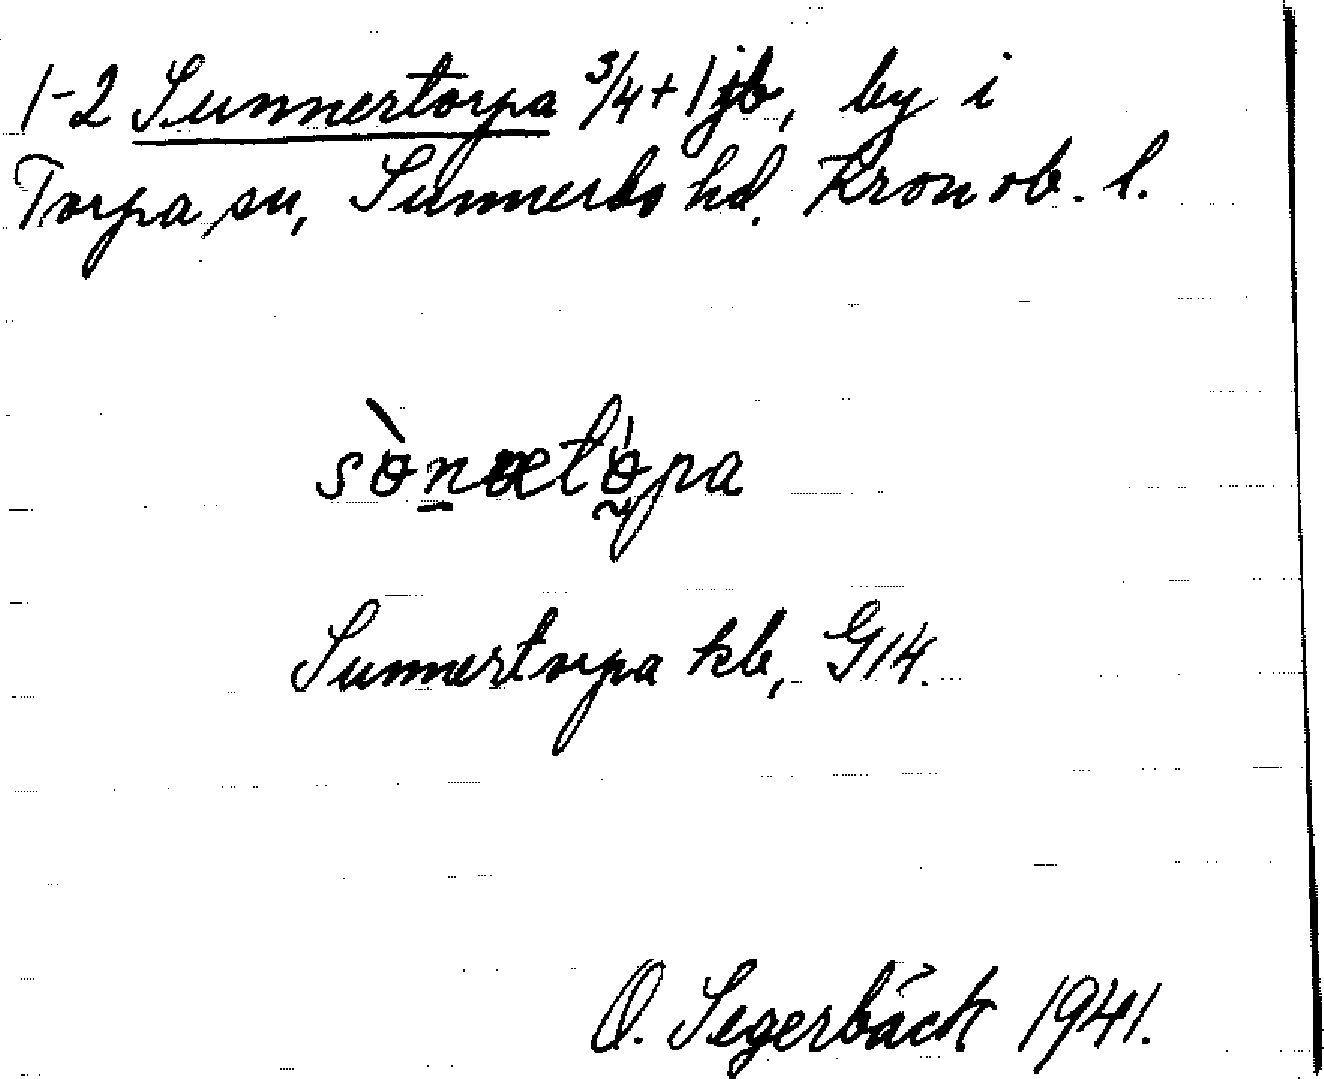 1-2 Sunnertorpa 3/4+1 jb, by i
Torpa sn, Sunnerbo hd. Kronob. l.
sònætɵ́pa
Sunnertorpa kb, G14.
O. Segerbäck 1941.